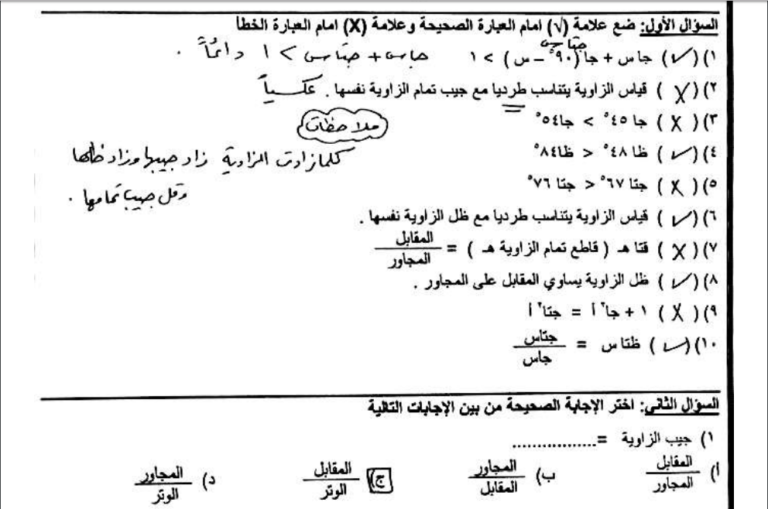 السؤال الأول: ضع علامة (√) امام العبارة الصحيحة وعلامة (X) امام العبارة الخطأ
جتاس
١) (✓) جاس + جا(٩٠° − س) > ١ جاس + جتاس > ١ دائماً .
٢) (X) قياس الزاوية يتناسب طرديا مع جيب تمام الزاوية نفسها . عكسياً
٣) (X) جا ٤٥° > جا٥٤° ملاحظات
٤) (✓) ظا٤٨° < ظا٨٤° كلما زادت الزاوية زاد جيبها وزاد ظلها
٥) (X) جتا ٦٧° < جتا ٧٦° وقل جيب تمامها .
٦) (✓) قياس الزاوية يتناسب طرديا مع ظل الزاوية نفسها .
٧) (X) قتا هـ ( قاطع تمام الزاوية هـ ) = المقابل / المجاور
٨) (✓) ظل الزاوية يساوي المقابل على المجاور .
٩) (X) ١ + جا² أ = جتا² أ
١٠) (✓) ظتا س = جتاس / جاس
السؤال الثاني: اختر الإجابة الصحيحة من بين الإجابات التالية
١) جيب الزاوية = .................
أ) المقابل / المجاور ب) المجاور / المقابل ج) المقابل / الوتر د) المجاور / الوتر